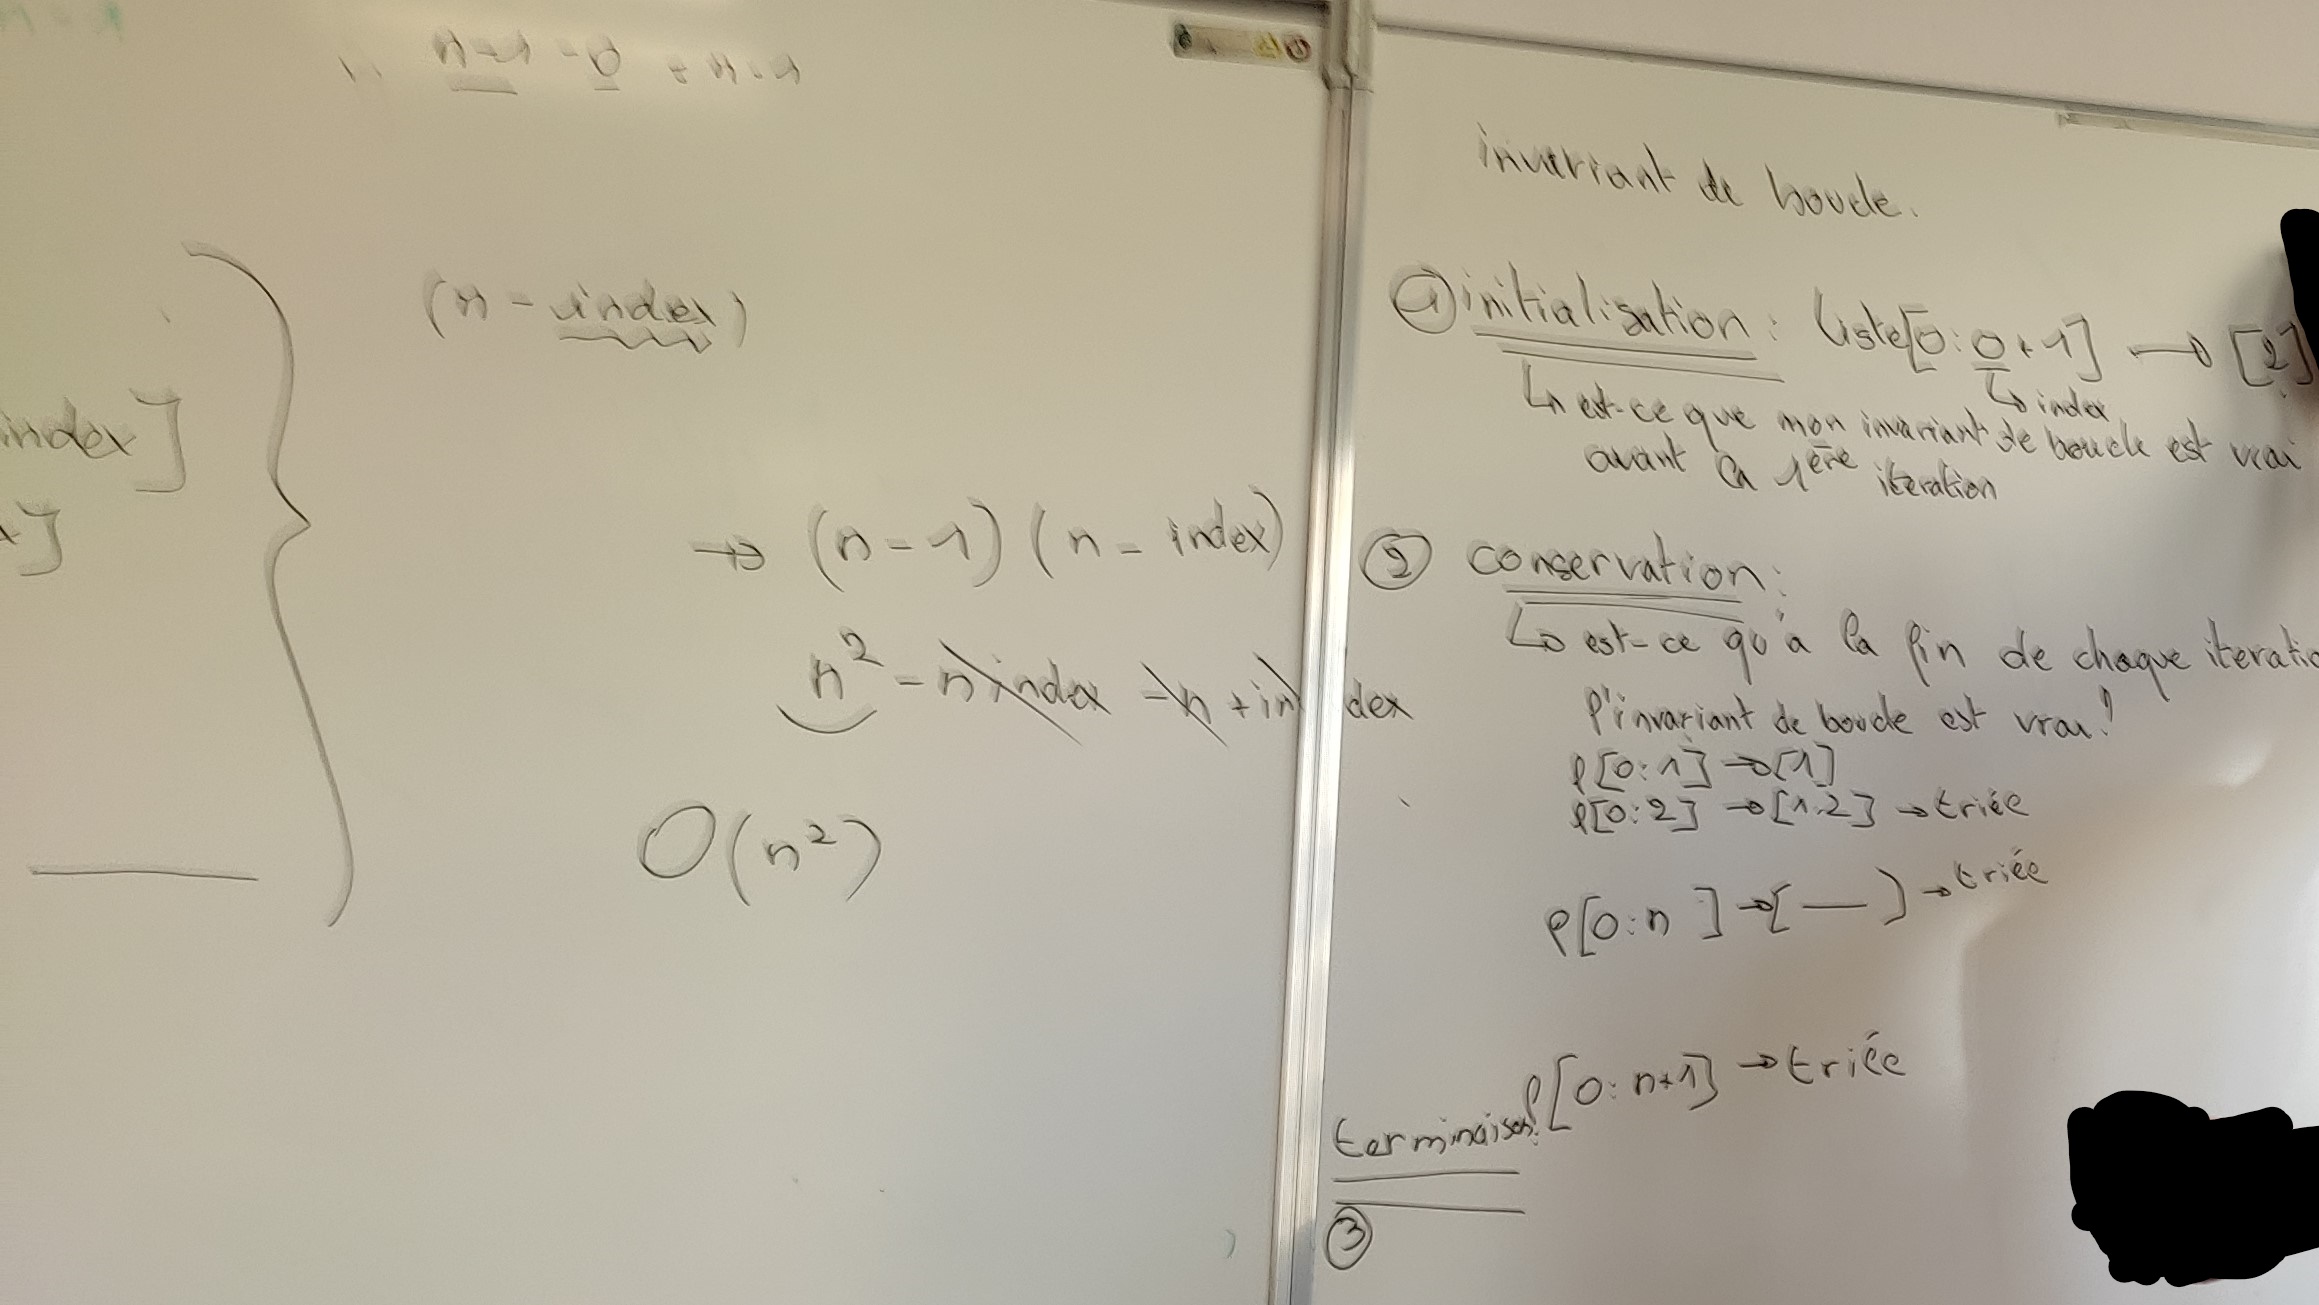 n-1 - 0 + n-1
(n - index)
index]
]
→ (n-1) (n - index)
n² - n index - n + index
O(n²)
invariant de boucle.
① initialisation : Liste[0: 0+1] → [2]
↳ index
↳ est-ce que mon invariant de boucle est vrai
avant la 1ère iteration
② conservation :
↳ est-ce qu'à la fin de chaque iteratio
l'invariant de boucle est vrai?
l[0:1] → [1]
l[0:2] → [1.2] → triée
l[0:n] → [—] → triée
l[0:n+1] → triée
terminaison:
③